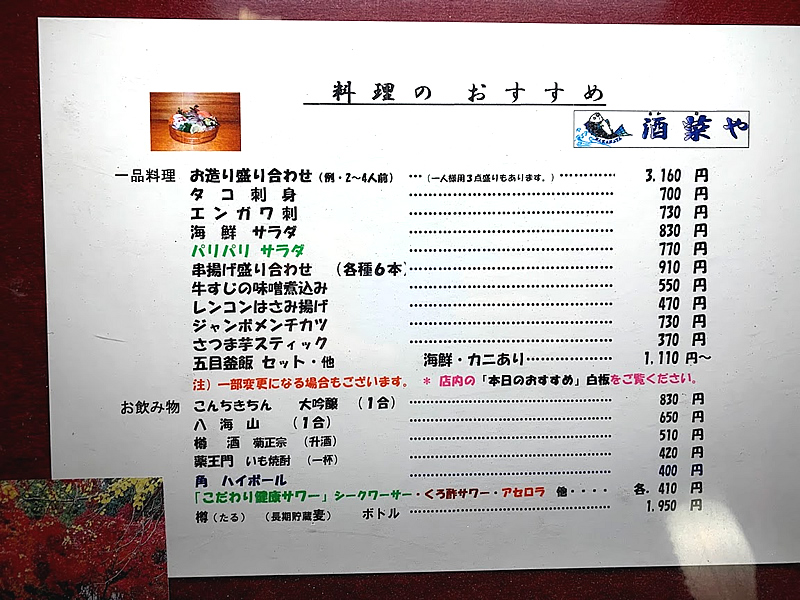 料理のおすすめ
酒菜や
一品料理 お造り盛り合わせ（例・2〜4人前） …（一人様用3点盛りもあります。）………… 3,160 円
タコ刺身 ………… 700 円
エンガワ刺 ………… 730 円
海鮮 サラダ ………… 830 円
パリパリ サラダ ………… 770 円
串揚げ盛り合わせ （各種6本） ………… 910 円
牛すじの味噌煮込み ………… 550 円
レンコンはさみ揚げ ………… 470 円
ジャンボメンチカツ ………… 730 円
さつま芋スティック ………… 370 円
五目釜飯 セット・他 海鮮・カニあり………… 1,110 円〜
注）一部変更になる場合もございます。 ＊ 店内の「本日のおすすめ」白板をご覧ください。
お飲み物 こんちきちん 大吟醸 （1合） ………… 830 円
八海山 （1合） ………… 650 円
樽酒 菊正宗 （升酒） ………… 510 円
薬王門 いも焼酎 （一杯） ………… 420 円
角 ハイボール ………… 400 円
「こだわり健康サワー」シークワーサー・くろ酢サワー・アセロラ 他・・・・ 各. 410 円
樽（たる） （長期貯蔵麦） ボトル ………… 1,950 円